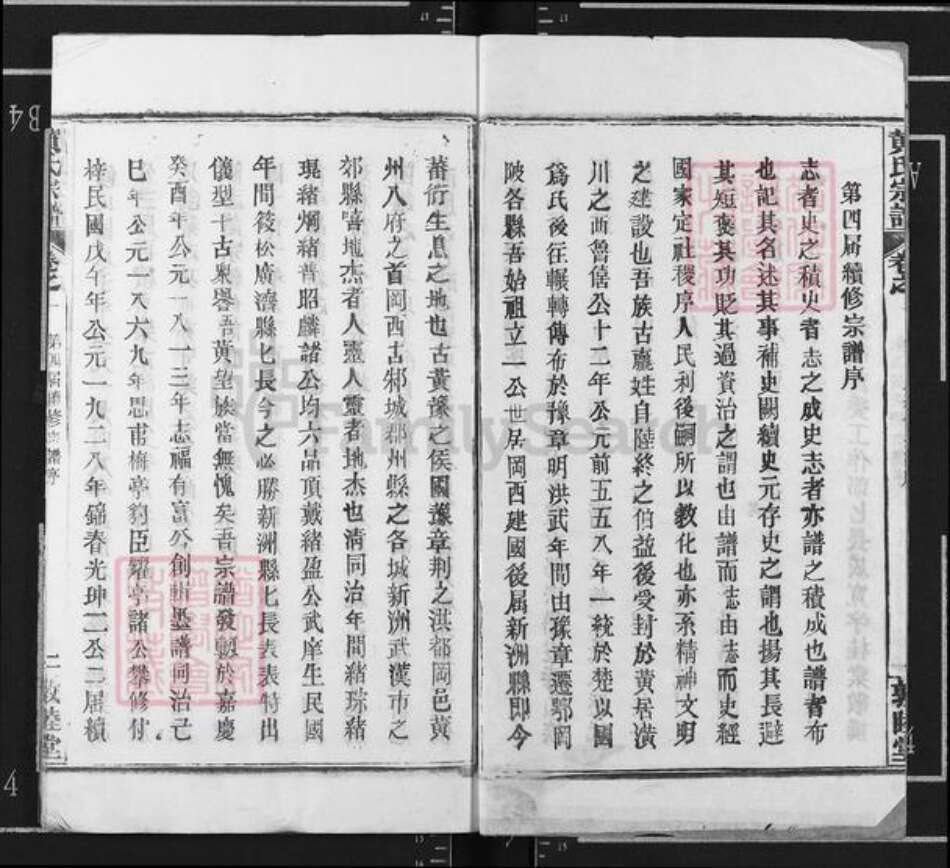 黄氏宗譜
卷之一
敦睦堂
第四届續修宗譜序
志者史之積史者志之成史志者亦譜之積成也譜者布
也記其名述其事補史闕續史元存史之謂也揚其長避
其短褒其功貶其過資治之謂也由譜而志由志而史經
國家定社稷序人民利後嗣所以教化也亦系精神文明
之建設也吾族古嬴姓自陸終之伯益後受封於黄居潢
川之西魯僖公十二年公元前五五八年一統於楚以國
爲氏後往輾轉傳布於豫章明洪武年間由豫章遷鄂岡
陂各縣吾始祖立一公世居岡西建國後届新洲縣即今
蕃衍生息之地也古黄豫之侯國豫章荆之淇都岡邑黄
州八府之首岡西古邾城郡州縣之各城新洲武漢市之
郊縣嘻地杰者人靈人靈者地杰也清同治年間緒琮緒
現緒炯緒普昭麟諸公均六品頂戴緒盈公武庠生民國
年間筱松廣濟縣匕長今之必勝新洲縣匕長表表特出
儀型十古衆譽吾黄望族當無愧矣吾宗譜發軔於嘉慶
癸酉年公元一八一三年志福有富公創輯墨譜同治己
巳年公元一八六九年思甫梅亭豹臣耀亭諸公攀修付
梓民國戊午年公元一九二八年錦春光珅二公二届續
黄氏宗譜
卷之一
第四届續修宗譜序
二
敦睦堂
FamilySearch
B4
4